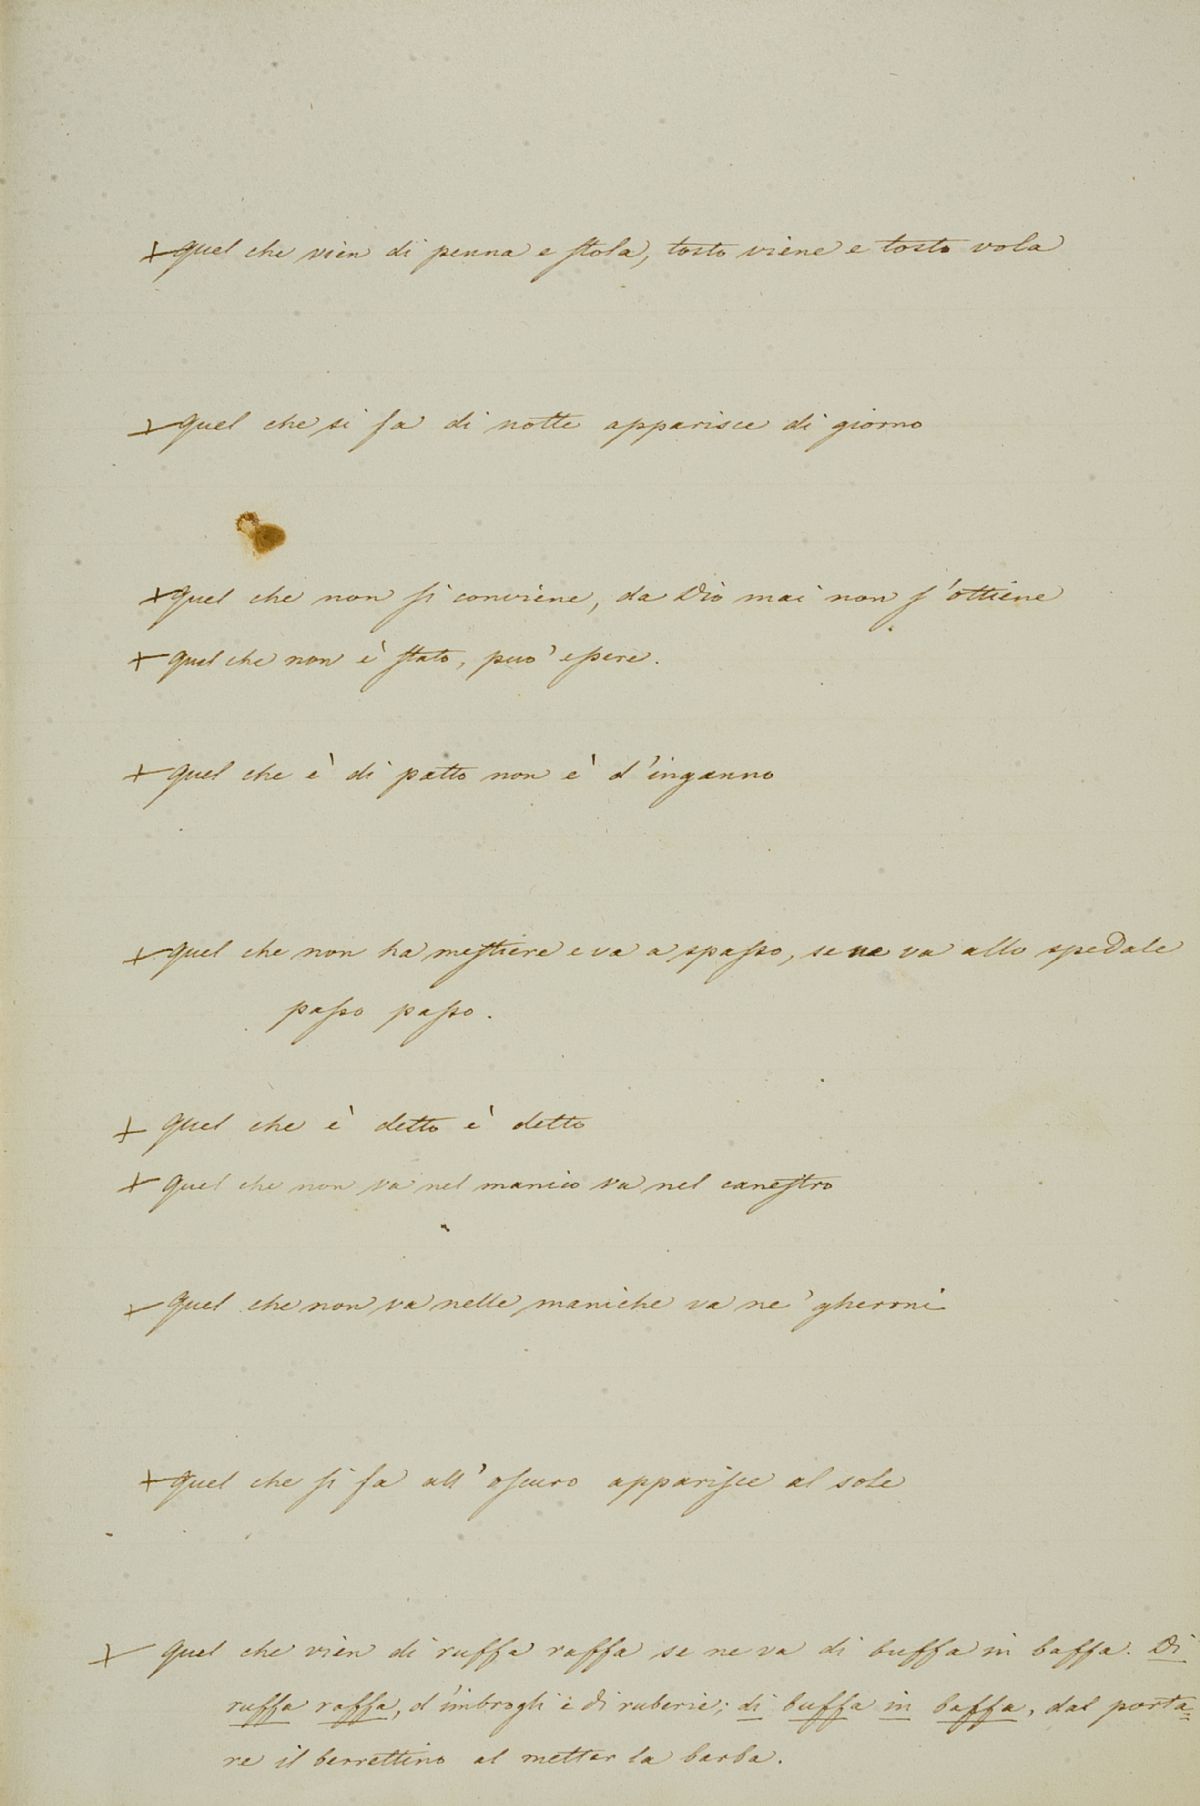 + Quel che vien di penna e stola, tosto viene e tosto vola
+ Quel che si fa di notte apparisce di giorno
+ Quel che non si conviene, da Dio mai non s'ottiene
+ Quel che non è stato, può essere.
+ Quel che è di patto non è d'inganno
+ Quel che non ha mestiere e va a spasso, se ne va allo spedale
passo passo.
+ Quel che è detto è detto
+ Quel che non va nel manico va nel canestro
+ Quel che non va nelle maniche va ne' gheroni
+ Quel che si fa all'oscuro apparisce al sole
+ Quel che vien di ruffa raffa se ne va di buffa in baffa. Di
ruffa raffa, d'imbrogli e di ruberie; di buffa in baffa, dal porta=
re il berrettino al metter la barba.